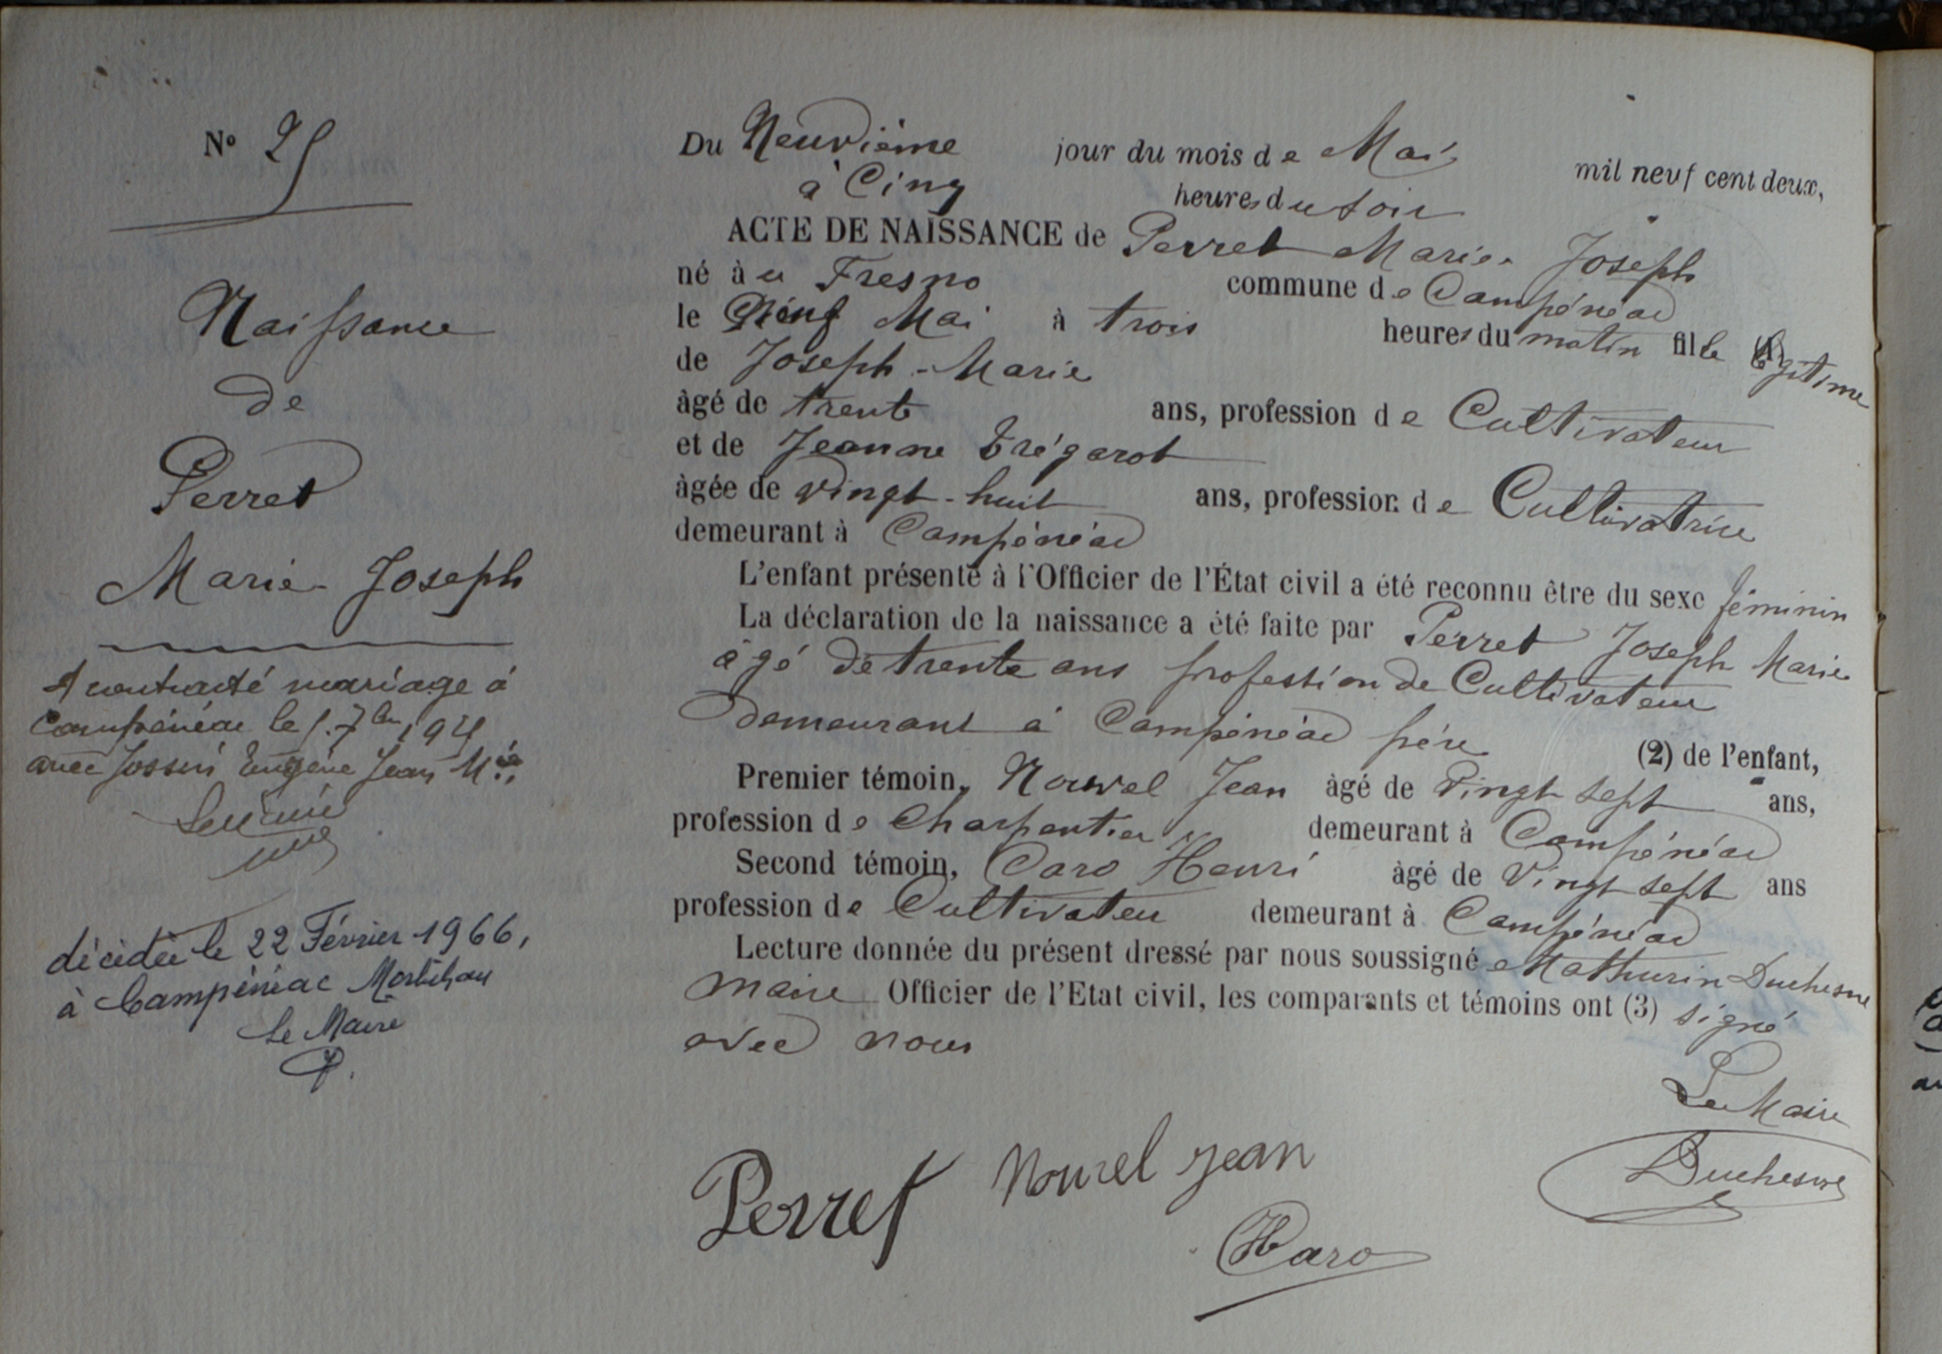 Nº 25
Naissance
de
Perret
Marie-Joseph
A contracté mariage à
Campénéac le
avec Jossin Eugène Jean Mie
Le Maire
décédée le 22 Février 1966,
à Campénéac Morbihan
Le Maire
Du Neuvième jour du mois de Mai mil neuf cent deux,
à Cinq heures du soir
ACTE DE NAISSANCE de Perret Marie-Joseph
né à u Fresno commune de Campénéac
le Neuf Mai à trois heures du matin fille légitime
de Joseph-Marie
âgé de trente ans, profession de Cultivateur
et de Jeanne Trégarot
âgée de vingt-huit ans, profession de Cultivatrice
demeurant à Campénéac
L'enfant présenté à l'Officier de l'État civil a été reconnu être du sexe féminin
La déclaration de la naissance a été faite par Perret Joseph Marie
âgé de trente ans profession de Cultivateur
demeurant à Campénéac père (2) de l'enfant,
Premier témoin, Nouvel Jean âgé de Vingt sept ans,
profession de Charpentier demeurant à Campénéac
Second témoin, Caro Henri âgé de Vingt sept ans
profession de Cultivateur demeurant à Campénéac
Lecture donnée du présent dressé par nous soussigné Mathurin Duchesne
Maire Officier de l'Etat civil, les comparants et témoins ont (3) signé
avec nous
Le Maire
Duchesne
Perret Nouvel Jean
HCaro